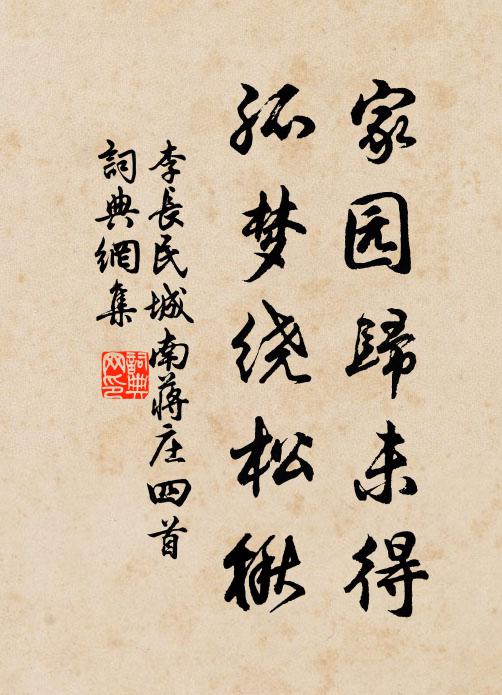 家园歸未得
孤梦绕松楸
李長民城南蔣庄四首
詞典網集
詞典网印